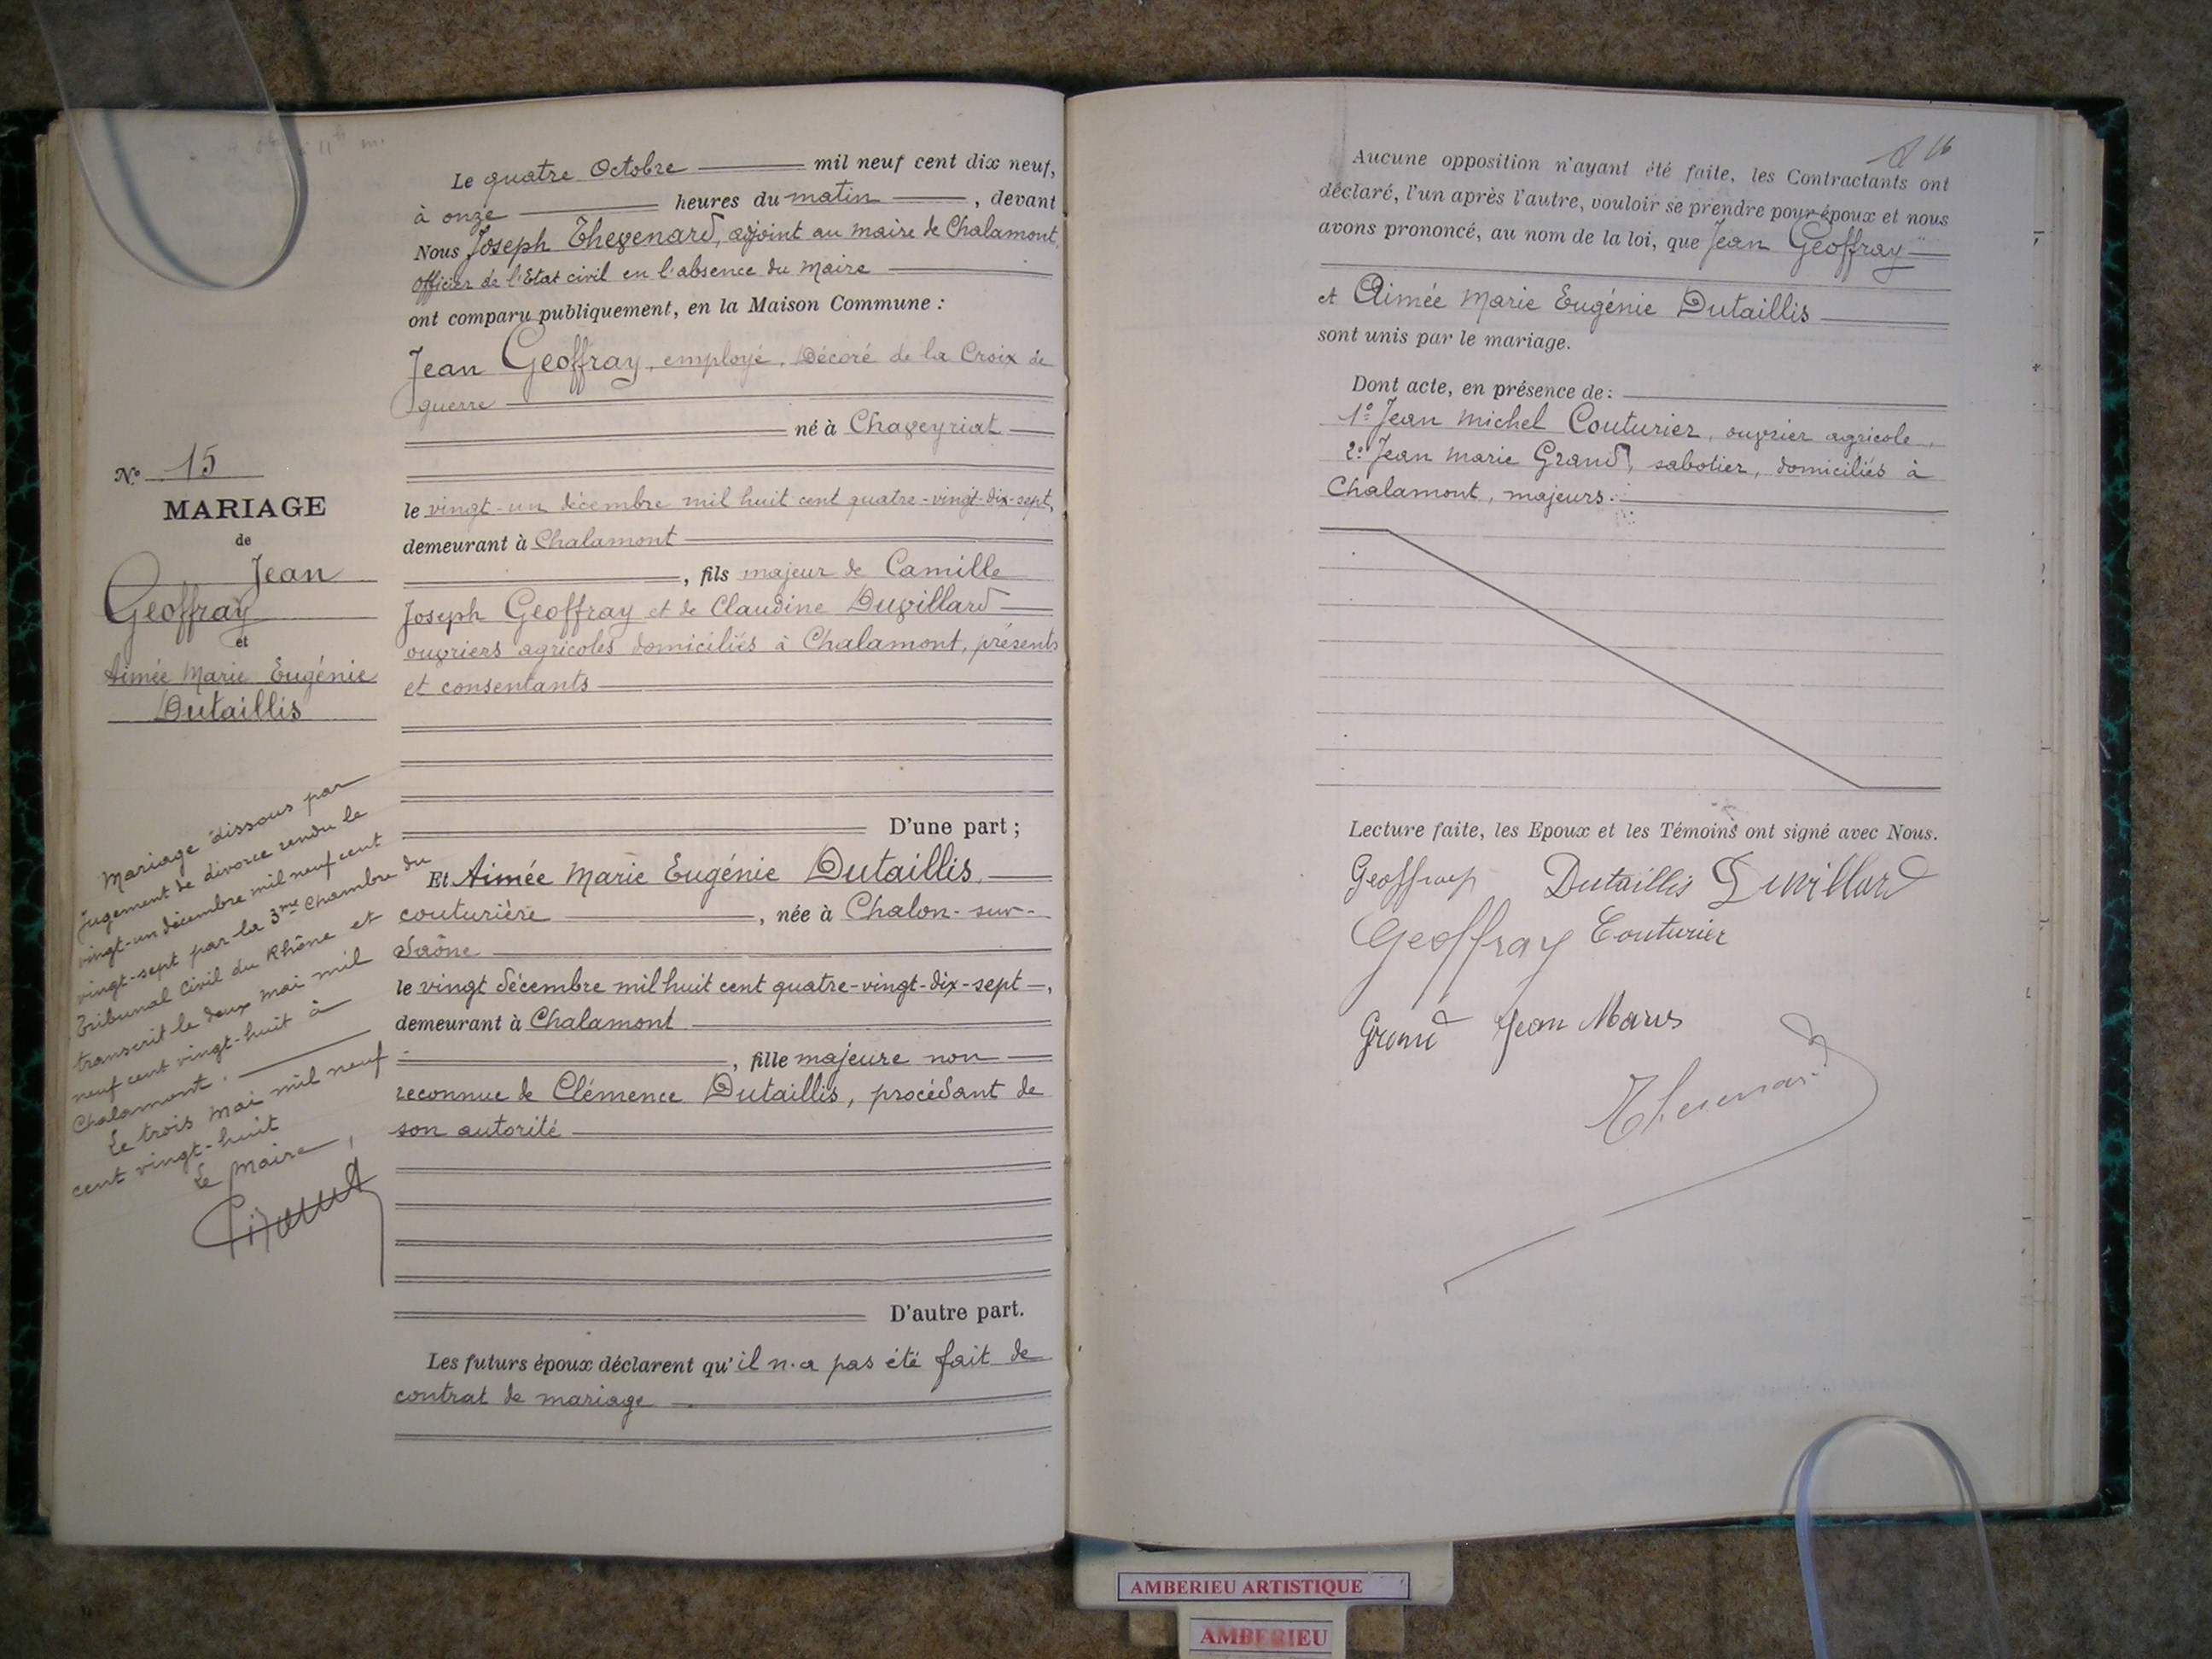 N° 15
MARIAGE
de
Jean
Geoffray
et
Aimée Marie Eugénie
Dutaillis
Mariage dissous par
jugement de divorce rendu le
vingt-un décembre mil neuf cent
vingt-sept par la 3me Chambre du
Tribunal Civil du Rhône et
transcrit le deux mai mil
neuf cent vingt-huit à
Chalamont.
Le trois mai mil neuf
cent vingt-huit
Le Maire,
Le quatre Octobre mil neuf cent dix neuf,
à onze heures du matin, devant
Nous Joseph Thevenard, adjoint au maire de Chalamont,
officier de l'Etat civil en l'absence du Maire
ont comparu publiquement, en la Maison Commune :
Jean Geoffray, employé, Décoré de la Croix de
guerre
né à Chaveyriat
le vingt-un décembre mil huit cent quatre-vingt-dix-sept,
demeurant à Chalamont
, fils majeur de Camille
Joseph Geoffray et de Claudine Duvillard
ouvriers agricoles domiciliés à Chalamont, présents
et consentants
D'une part ;
Et Aimée Marie Eugénie Dutaillis,
couturière, née à Chalon-sur-
Saône
le vingt décembre mil huit cent quatre-vingt-dix-sept,
demeurant à Chalamont
, fille majeure non
reconnue de Clémence Dutaillis, procédant de
son autorité
D'autre part.
Les futurs époux déclarent qu'il n'a pas été fait de
contrat de mariage
Aucune opposition n'ayant été faite, les Contractants ont
déclaré, l'un après l'autre, vouloir se prendre pour époux et nous
avons prononcé, au nom de la loi, que Jean Geoffray
et Aimée Marie Eugénie Dutaillis
sont unis par le mariage.
Dont acte, en présence de :
1° Jean Michel Couturier, ouvrier agricole,
2° Jean Marie Grand, sabotier, domiciliés à
Chalamont, majeurs.
Lecture faite, les Epoux et les Témoins ont signé avec Nous.
Geoffray Dutaillis Duvillard
Geoffray Couturier
Grand Jean Marius
Thevenard
AMBERIEU ARTISTIQUE
AMBERIEU